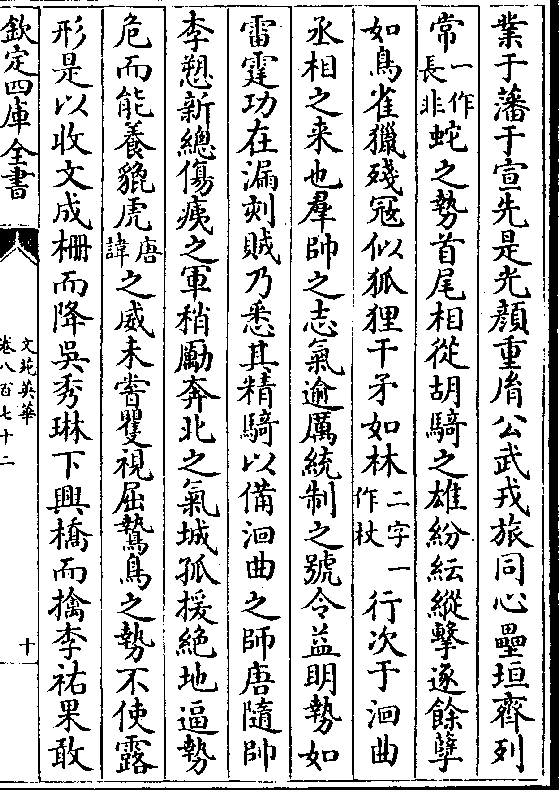 業于藩于宣先是光顔重㣧公武戎旅同心壘垣齊列
常一作長非蛇之勢首尾相從胡騎之雄紛紜縱擊逐餘孽
如鳥雀獵殘冦似狐狸干矛如林二字一作杖行次于洄曲
丞相之来也羣帥之志氣逾厲統制之號令益明勢如
雷霆功在漏刻賊乃悉其精騎以備洄曲之師唐隨帥
李愬新總傷痍之軍稍勵奔北之氣城孤援絶地逼勢
危而能養貔虎唐諱之威未嘗瞿視屈鷙鳥之勢不使露
形是以收文成柵而降吳秀琳下興橋而擒李祐果敢
欽定四庫全書
文苑英華
卷八百七十二
十